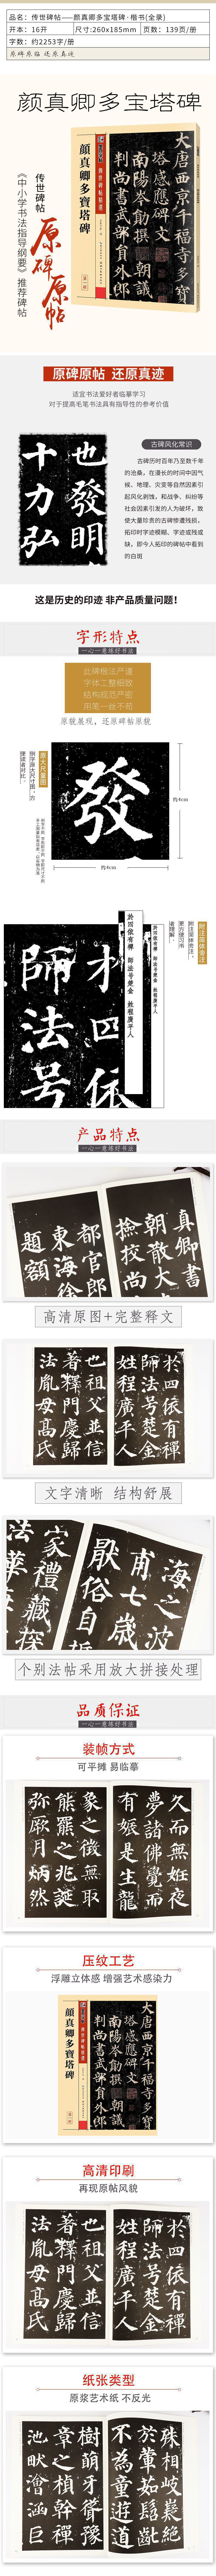 品名：传世碑帖——颜真卿多宝塔碑·楷书(全录)
开本：16开
尺寸:260x185mm
页数：139页/册
字数：约2253字/册
原碑原临 还原真迹
颜真卿多宝塔碑
《中小学书法指导纲要》推荐碑帖
传世碑帖
原碑原帖
大唐西京千福寺多寶
塔感應碑文
南陽岑勛撰 朝議
判尚書武部員外郎
原碑原帖 还原真迹
适宜书法爱好者临摹学习
对于提高毛笔书法具有指导性的参考价值
也發明
十力弘
古碑风化常识
古碑历时百年乃至数千年
的沧桑，在漫长的时间中因气
候、地理、灾变等自然因素引
起风化剥蚀，和战争、纠纷等
社会因素引发的人为破坏，致
使大量珍贵的古碑惨遭残损，
拓印时字迹模糊、字迹或残或
缺，即今人拓印的碑帖中看到
的白斑
这是历史的印迹 非产品质量问题！
字形特点
一心一意练好书法
此碑楷法严谨
字体工整细致
结构规范严密
用笔一丝不苟
原貌展现，还原碑帖原貌
發
约4cm
约4cm
附注简体旁注
於四依有禪
師法号楚金
姓程廣平人
产品特点
一心一意练好书法
真卿書
朝散大
撿校尚
都官郎
東海徐
題額
高清原图+完整释文
於四依有禪
師法号楚金
姓程廣平人
也祖父並信
著釋門慶歸
法胤母高氏
文字清晰 结构舒展
海之波
甫七歲
猒俗自
禮藏探
法華
个别法帖采用放大拼接处理
品质保证
一心一意练好书法
装帧方式
可平摊 易临摹
久而無姙夜
夢諸佛覺而
有娠是生龍
象之徵無取
熊羆之兆誕
弥厥月炳然
压纹工艺
浮雕立体感 增强艺术感染力
顏真卿多寶塔碑
大唐西京千福寺多寶
塔感應碑文
南陽岑勛撰 朝議
判尚書武部員外郎
高清印刷
再现原帖风貌
於四依有禪
師法号楚金
姓程廣平人
也祖父並信
著釋門慶歸
法胤母高氏
纸张类型
原浆艺术纸 不反光
殊相岐嶷絕
於葷茹髫齔
不為童遊道
樹萌牙聳豫
章之楨幹禪
池畎澮涵巨